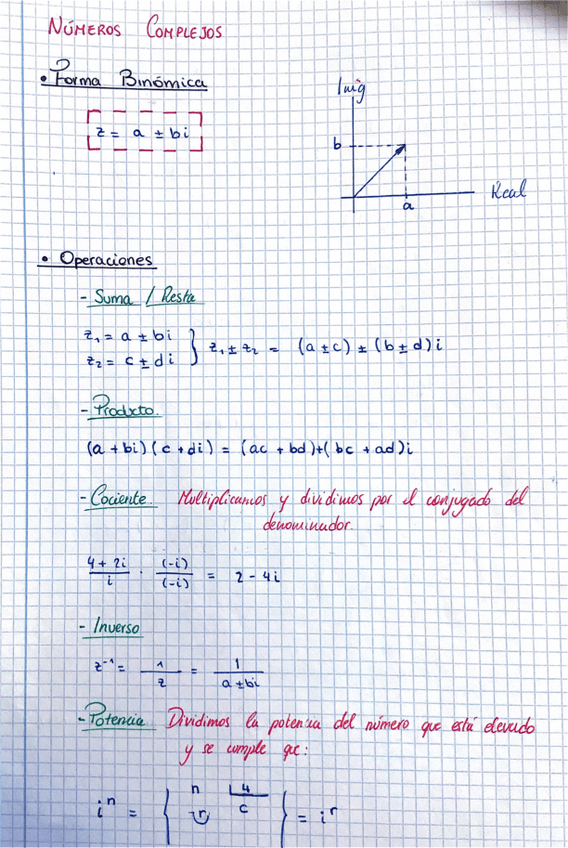 NÚMEROS COMPLEJOS
• Forma Binómica
z = a ± bi
Imig
b
a
Real
• Operaciones
- Suma / Resta
z₁ = a ± bi
z₂ = c ± di } z₁ ± z₂ = (a ± c) ± (b ± d) i
- Producto.
(a + bi) (c + di) = (ac + bd)+(bc + ad)i
- Cociente Multiplicamos y dividimos por el conjugado del
denominador.
4 + 2i / i · (-i) / (-i) = 2 - 4i
- Inverso
z⁻¹ = 1 / z = 1 / a ± bi
- Potencia Dividimos la potencia del número que está elevado
y se cumple que:
iⁿ = { n 4
r c } = iʳ